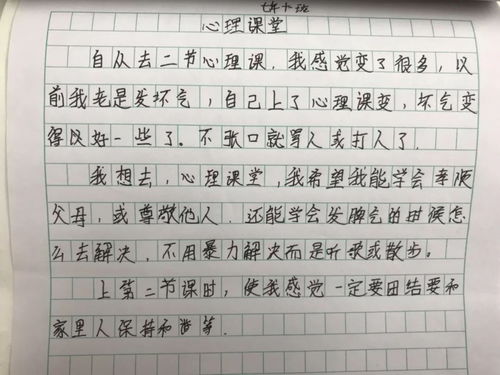 七年十班
心理课堂
自从去二节心理课,我感觉变了很多,以
前我老是发坏气,自己上了心理课变,坏气变
得以好一些了。不张口就骂人或打人了.
我想去,心理课堂,我希望我能学会孝顺
父母,或尊敬他人.还能学会发脾气的时候怎
么去解决,不用暴力解决而是听歌或散步。
上第二节课时,使我感觉一定要团结要和
家里人保持和谐等.